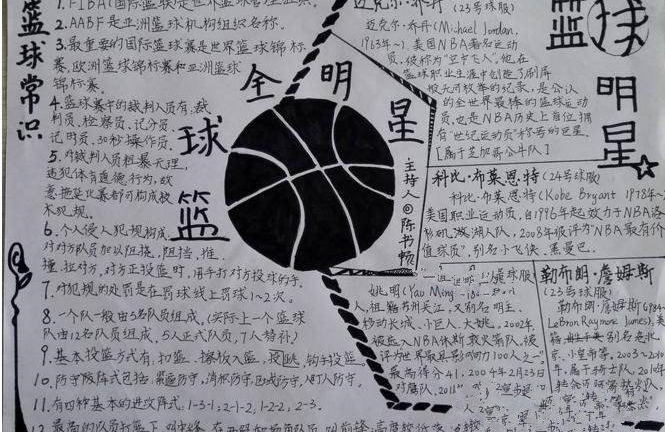 篮球常识
1.FIBA(国际篮联)是
2.AABF是亚洲篮球机构组织名称。
3.最重要的国际篮球赛是世界篮球锦标
赛,欧洲篮球锦标赛和亚洲篮球
锦标赛。
4.篮球赛中的裁判人员有:裁
判员、检察员、记分员
记时员、30秒操作员。
5.对裁判人员粗暴无理,
违犯体育道德行为,故
意拖延比赛都可构成技
术犯规。
6.个人侵人犯规构成:
对对方队员加以阻挠,阻挡,推
撞,拉对方,对方正投篮时,用手打对方投球的手.
7.对犯规的处罚是在罚球线上罚球1~2次。
8.一个队一般由5名队员组成,(实际上一个篮球
队由12名队员组成,5人正式队员,7人替补)
9.基本投篮方式有:扣篮、擦板入篮、跳、钩手投篮
10.防守阵式包括:紧迫防守,消积防守,区域防守,盯人防守.
11.有四种基本的进攻阵式:1-3-1;2-1-2,1-2-2,2-3.
12.最高的队员打篮下
全明星
篮球
主持人@陈书顿
迈克尔·乔丹(23号球服)
迈克尔·乔丹(Michael Jordan,
1963年~),美国NBA著名运动
员,被称为“空中飞人”,他在
篮球职业生涯中创造了刷屏
般无可枚举的纪录,是公认
的全世界最棒的篮球运动
员,也是NBA历史上首位拥
有“世纪运动员”称号的巨星.
[属于芝加哥公牛队]
篮球明星
科比·布莱恩特(24号球服)
科比·布莱恩特(Kobe Bryant 1978年~
美国职业运动员,自1996年起效力于NBA洛
杉矶湖人队,2008年被评为“NBA最有价
值球员”,别名小飞侠、黑曼巴。
球服)
姚明(Yao Ming
人,祖籍苏州吴江,又别名明王、
移动长城、小巨人、大姚。2002年
被选入NBA休斯敦火箭队,被
评为世界最具影响力100人之一,
最高得分41,2009年2月23日
对魔队,2011
勒布朗·詹姆斯
(23号球服)
勒布朗·詹姆斯(1984
LeBron Raymone James),美
别名是
京、小皇帝等,2003~2010
年,属于骑士队,2010年
转会迈阿密热火队